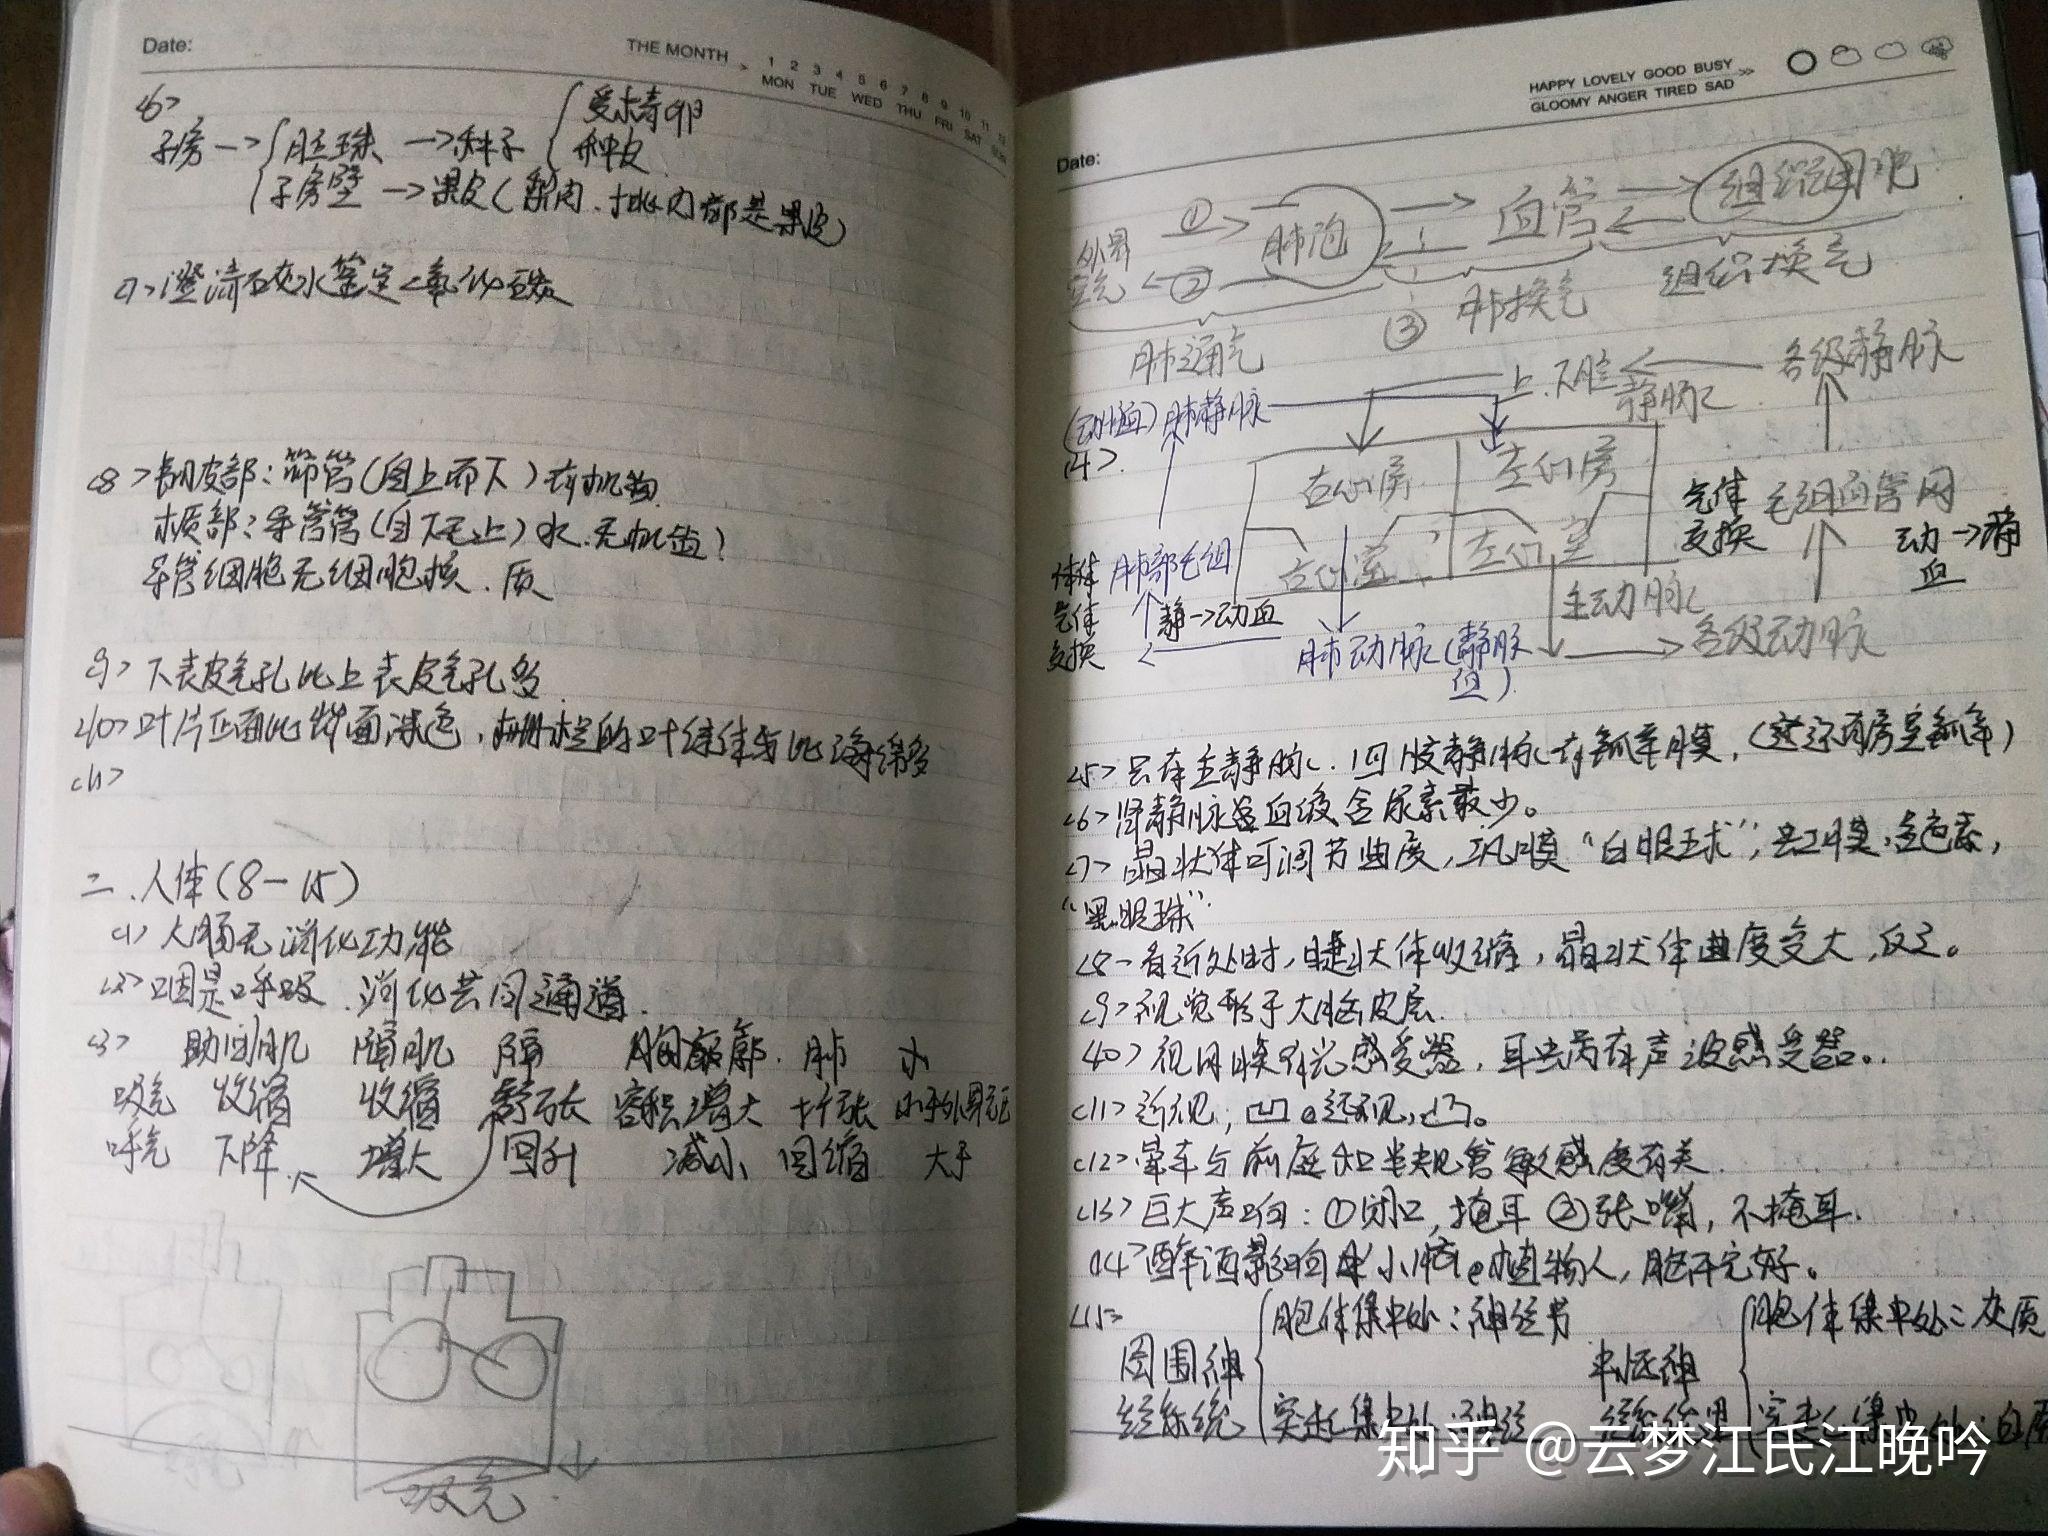 Date:
THE MONTH > 1 2 3 4 5 6 7 8 9 10 11 12
MON TUE WED THU FRI SAT SUN
<6>
子房→{胚珠→种子{受精卵
种皮
子房壁→果皮(
内都是果皮)
<7>澄清石灰水鉴定二氧化碳
<8>韧皮部:筛管(自上而下)有机物
木质部:导管管(自下至上)水.无机盐)
导管细胞无细胞核.质
<9>下表皮气孔比上表皮气孔多
<10>叶片正面比背面深色,栅栏的叶绿体与比海绵多
<11>
二.人体(8-15)
<1>大肠无消化功能
<2>咽是呼吸.消化共同通道.
<3> 肋间肌 膈肌 膈 胸廓. 肺
吸气 收缩 收缩 舒张 容积增大 扩张 小于外界气压
呼气 下降. 增大 回升 减小 回缩 大于
吸气
HAPPY LOVELY GOOD BUSY >>
GLOOMY ANGER TIRED SAD
Date:
外界空气 ① ② 肺泡 血管 组织细胞
肺通气 ③ 肺换气 组织换气
上.下腔静脉 各级静脉
(动脉血)肺静脉
<4>.
右心房 左心房
右心室 左心室
气体交换 毛细血管网 动→静血
肺部毛细
气体交换
静→动血
主动脉 各级动脉
肺动脉(静脉血)
<5>只有主静脉.四肢静脉有瓣膜,(还有房室瓣等)
<6>肾静脉血液含尿素最少。
<7>晶状体可调节曲度,巩膜“白眼球”,虹膜,色素,
“黑眼珠”.
<8-看近处时,睫状体收缩,晶状体曲度变大,反之。
<9>视觉形于大脑皮层.
<10>视网膜有光感受器,耳蜗有声波感受器。
<11>近视,凹。远视,凸。
<12>晕车与前庭和半规管敏感度有关.
<13>巨大声响:①闭口,掩耳②张嘴,不掩耳.
<14>醉酒影响小脑。植物人,脑干完好。
<15>
周围神经系统{胞体集中处:神经节
突起集中处:神经
中枢神经系统里{胞体集中处:灰质
突起集中处:白质
知乎 @云梦江氏江晚吟